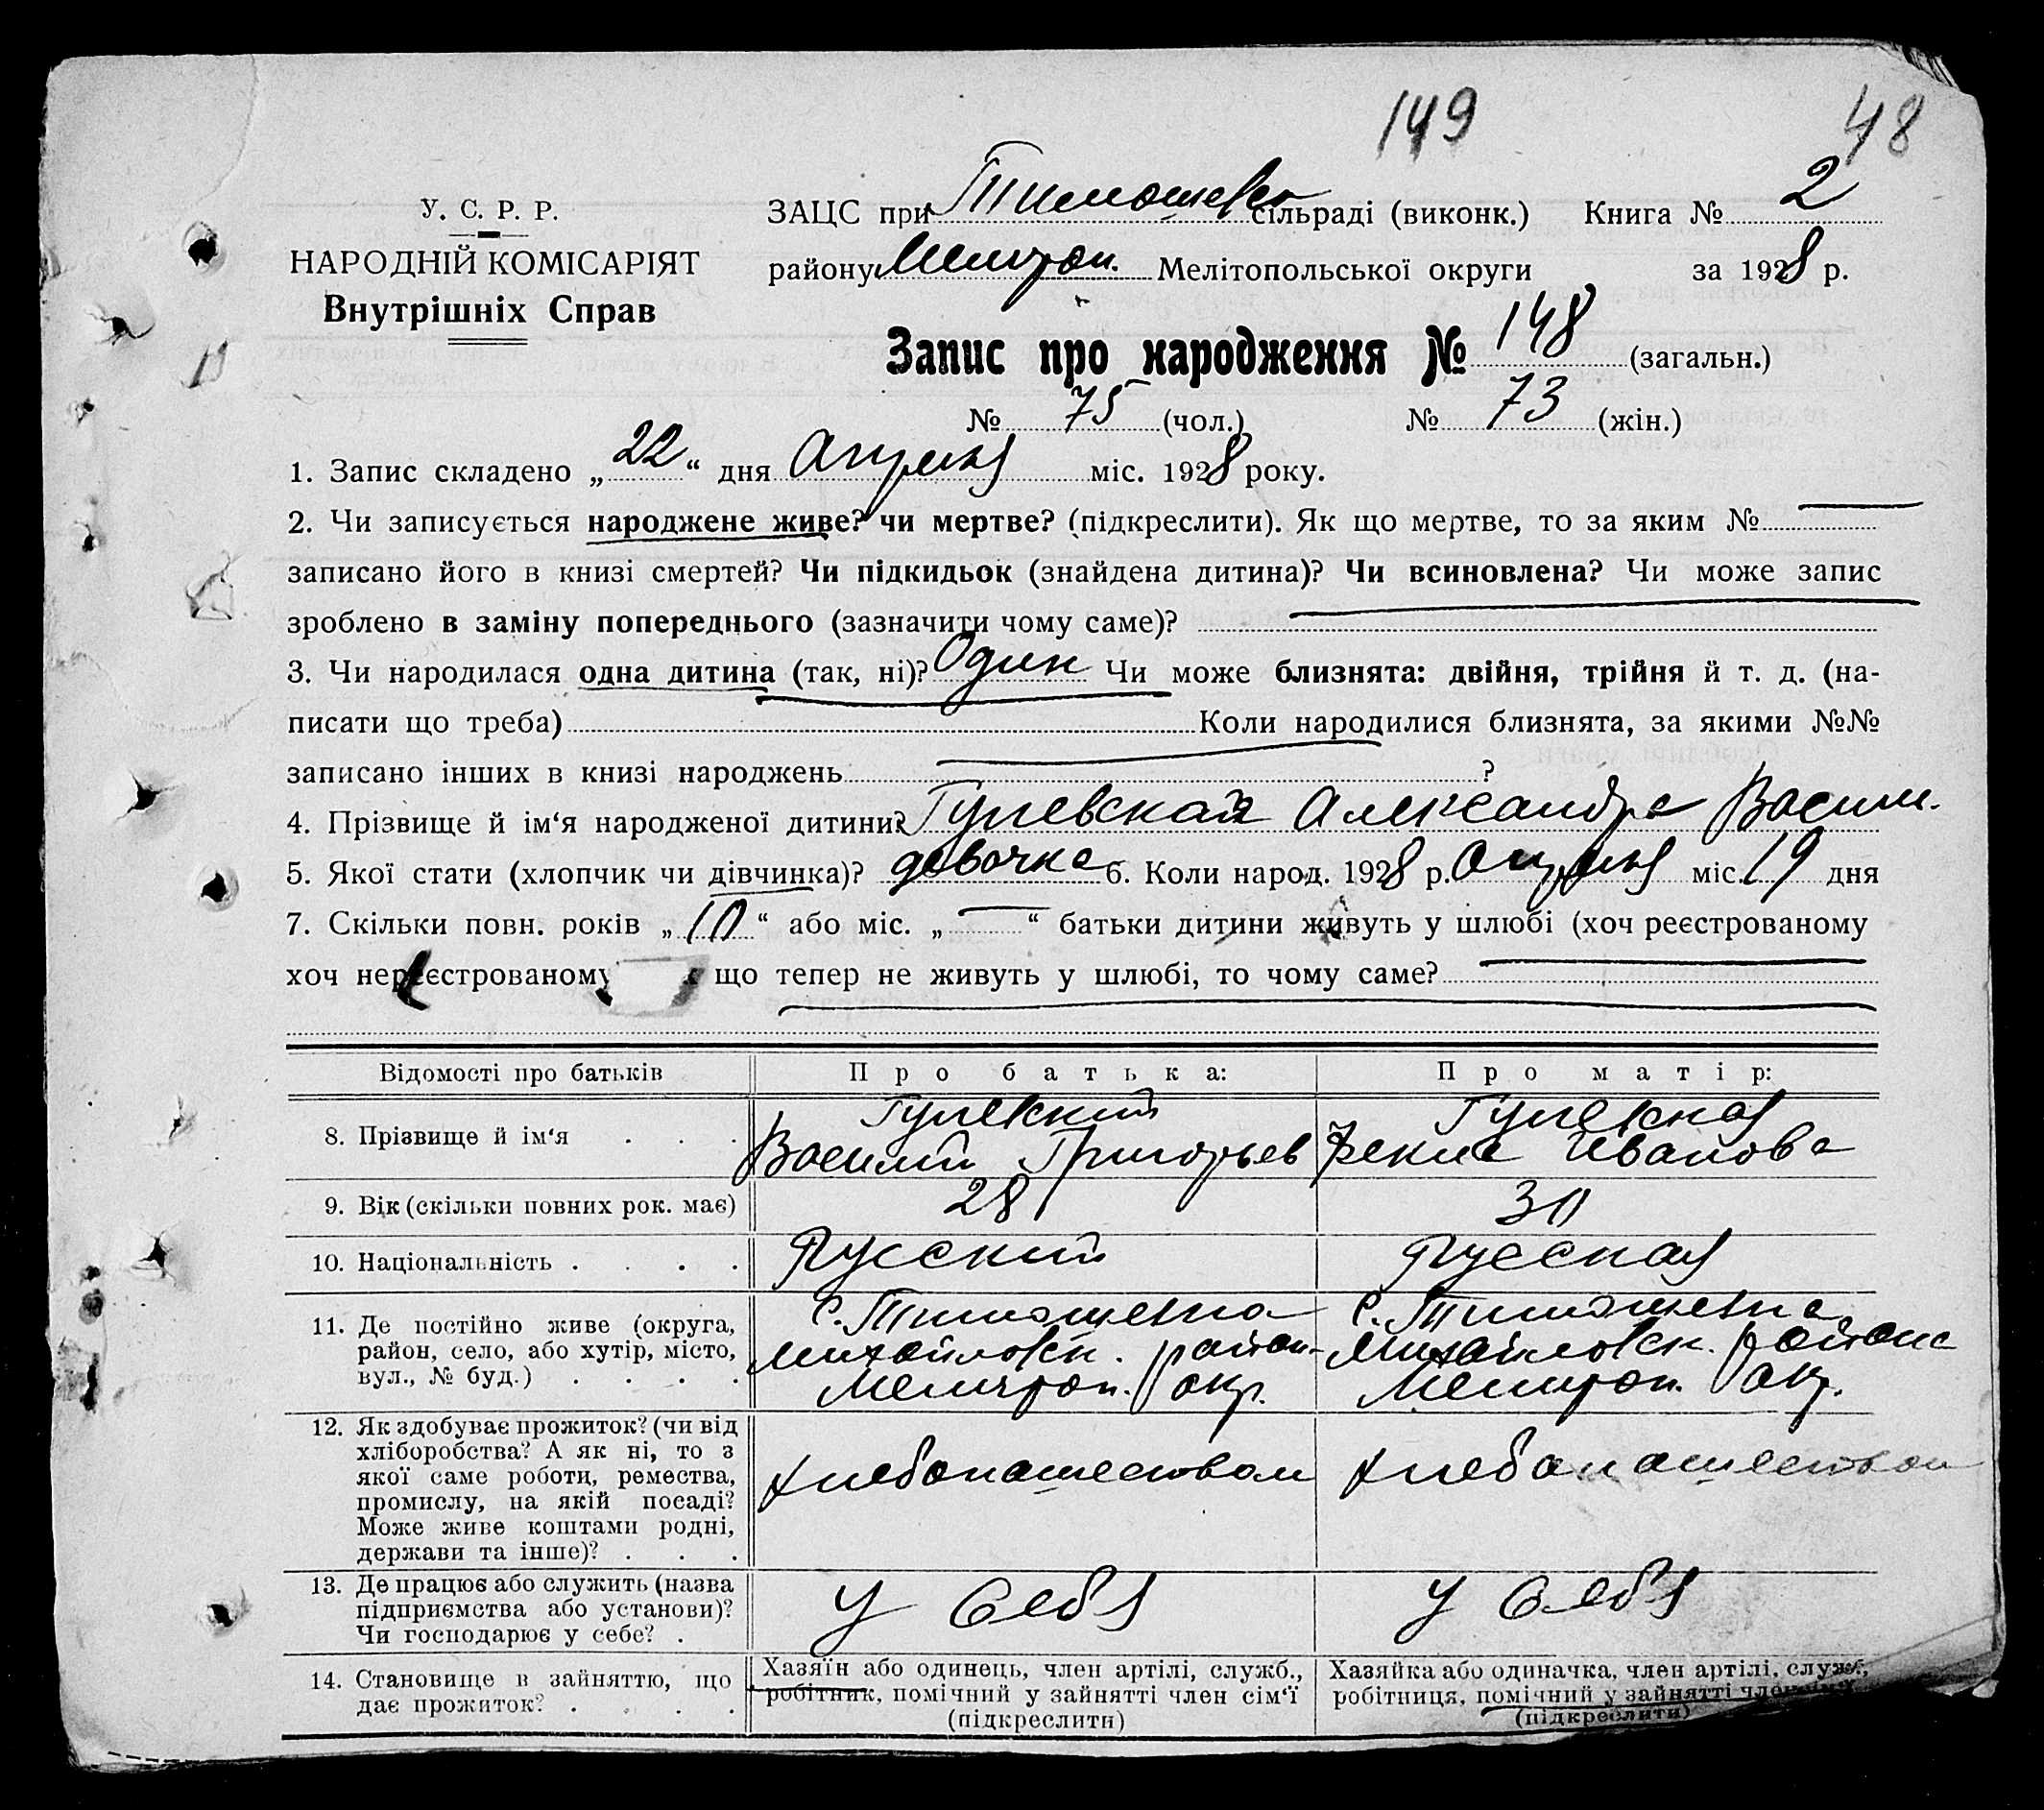 149
48
У. С. Р. Р.
НАРОДНІЙ КОМІСАРІЯТ
Внутрішніх Справ
ЗАЦС при Тимошевс сільраді (виконк.) Книга № 2
району Мелитоп. Мелітопольської округи за 1928 р.
Запис про народження № 148 (загальн.)
№ 75 (чол.) № 73 (жін.)
1. Запис складено „22“ дня Апреля міс. 1928 року.
2. Чи записується народжене живе? чи мертве? (підкреслити). Як що мертве, то за яким №
записано його в книзі смертей? Чи підкидьок (знайдена дитина)? Чи всиновлена? Чи може запис
зроблено в заміну попереднього (зазначити чому саме)?
3. Чи народилася одна дитина (так, ні)? Один Чи може близнята: двійня, трійня й т. д. (на-
писати що треба) Коли народилися близнята, за якими №№
записано інших в книзі народжень ?
4. Прізвище й ім‘я народженої дитини? Гулевская Александра Васил.
5. Якої стати (хлопчик чи дівчинка)? девочка 6. Коли народ. 1928 р. Апреля міс. 19 дня
7. Скільки повн. років „10“ або міс. „ “ батьки дитини живуть у шлюбі (хоч реєстрованому
хоч нереєстрованому що тепер не живуть у шлюбі, то чому саме?
Відомості про батьків Про батька: Про матір:
8. Прізвище й ім‘я . . . Гулевский Василий Григорьев Гулевская Фекла Иванова
9. Вік (скільки повних рок. має) 28 30
10. Національність . . . . Русский Русская
11. Де постійно живе (округа,
район, село, або хутір, місто,
вул., № буд.) . . . .
с. Тимошевка
Михайловск. район
Мелитоп. окр.
с. Тимошевка
Михайловск. района
Мелитоп. окр.
12. Як здобуває прожиток? (чи від
хліборобства? А як ні, то з
якої саме роботи, ремества,
промислу, на якій посаді?
Може живе коштами родні,
держави та інше)? . . .
хлебопашеством
хлебопашеством
13. Де працює або служить (назва
підприємства або установи)?
Чи господарює у себе? .
у себя
у себя
14. Становище в зайняттю, що
дає прожиток? . . . .
Хазяїн або одинець, член артілі, служб.,
робітник, помічний у зайнятті член сім‘ї
(підкреслити)
Хазяйка або одиначка, член артілі, служб.,
робітниця, помічний у зайнятті член
(підкреслити)